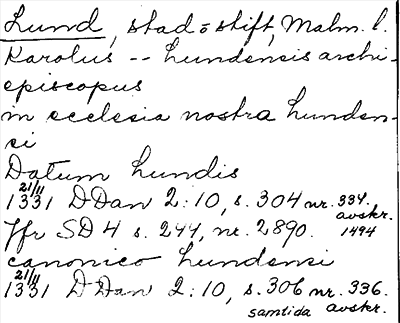 Lund, stad o stift, Malm. l.
Karolus -- lundensis archi-
episcopus
in ecclesia nostra lunden-
si
Datum lundis
21/11 1331 DDan 2:10, s. 304 nr. 334. avskr. 1494
Jfr SD 4 s. 244, nr. 2890.
canonico lundensi
21/11 1331 DDan 2:10, s. 306 nr. 336.
samtida avskr.